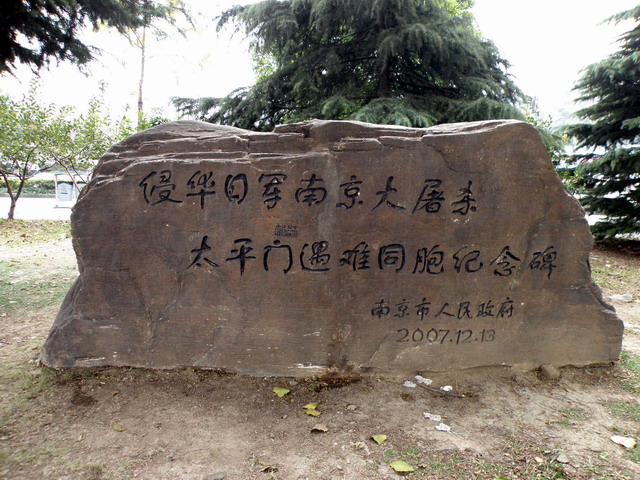 侵华日军南京大屠杀
太平门遇难同胞纪念碑
南京市人民政府
2007.12.13